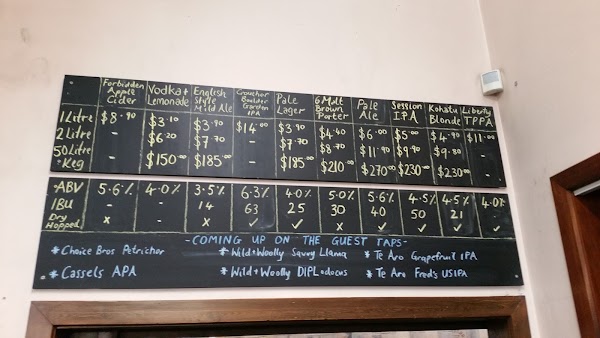 Forbidden Apple Cider Vodka + Lemonade English Style Mild Ale Croucher Boulder Garden IPA Pale Lager 6 Malt Brown Porter Pale Ale Session IPA Kohatu Blonde Liberty TPPA
1 Litre $8.90 $3.10 $3.90 $14.00 $3.90 $4.40 $6.00 $5.00 $4.90 $11.00
2 Litre - $6.20 $7.70 - $7.70 $8.70 $11.90 $9.90 $9.80 -
50 Litre *Keg - $150.00 $185.00 - $185.00 $210.00 $270.00 $230.00 $230.00 -
-ABV 5.6% 4.0% 3.5% 6.3% 4.0% 5.0% 5.6% 4.5% 4.5% 4.0%
IBU - - 14 63 25 30 40 50 21 -
Dry Hopped x - x ✓ ✓ x ✓ ✓ ✓ ✓
-COMING UP ON THE GUEST TAPS-
* Choice Bros Petrichor * Wild + Woolly Savvy Llama * Te Aro Grapefruit IPA
* Cassels APA * Wild + Woolly DIPLodocus * Te Aro Fred's USIPA